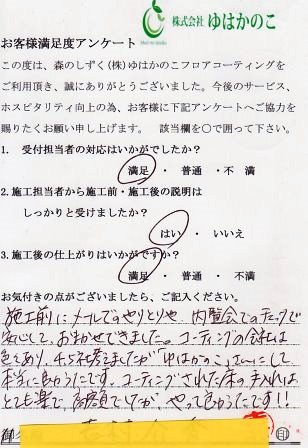 株式会社 ゆはかのこ
お客様満足度アンケート
この度は、森のしずく(株)ゆはかのこフロアコーティングを
ご利用頂き、誠にありがとうございました。今後のサービス、
ホスピタリティ向上の為、お客様に下記アンケートへご協力を
賜りたくお願い申し上げます。 該当欄を○で囲って下さい。
1. 受付担当者の対応はいかがでしたか?
満足 ・ 普通 ・ 不 満
2.施工担当者から施工前・施工後の説明は
しっかりと受けましたか?
はい ・ いいえ
3.施工後の仕上がりはいかがですか?
満足 ・ 普通 ・ 不満
お気付きの点がございましたら、ご記入ください。
施工前にメールでのやりとりや、内覧会でのチェックで
安心して、おまかせできました。コーティングの会社は
色々あり、4、5社考えましたが「ゆはかのこ」さんにして
本当に良かったです。コーティングされた床の手入れは
とても楽で、高額でしたが、やって良かったです!!